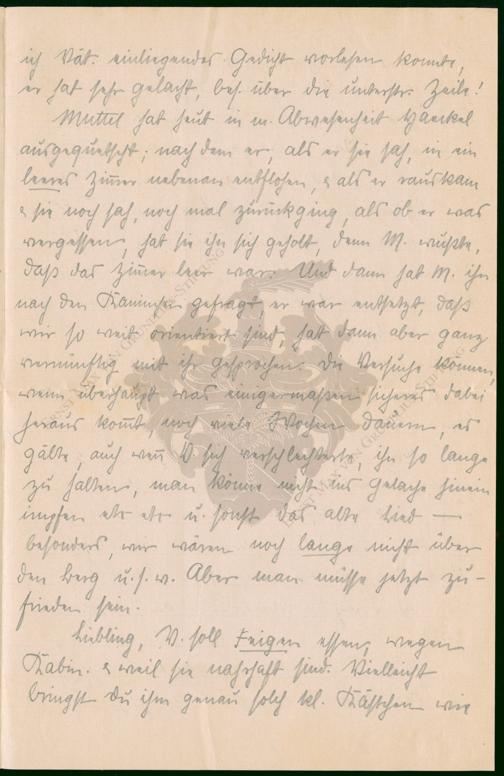 ich Vät. einliegendes Gedicht vorlesen konnte,
er hat sehr gelacht, bes. über die unterstr. Zeile!
Muttel hat heut in m. Abwesenheit Haeckel
ausgequetscht; nachdem er, als er sie sah, in ein
leeres Zimmer nebenan entflohen, & als er rauskam
& sie noch sah, noch mal zurückging, als ob er was
vergessen, hat sie ihn sich geholt, denn M. wußte,
daß das Zimmer leer war. Und dann hat M. ihn
nach den Kaninchen gefragt er war entsetzt, daß
wir so weit orientiert sind, hat dann aber ganz
vernünftig mit ihr gesprochen. Die Versuche können,
wenn überhaupt was einigermaßen sicheres dabei
heraus kommt, noch viele Wochen dauern, es
gälte, auch wenn V. sich verschlechterte, ihn so lange
zu halten, man könne nicht ins Gelache hinein
impfen etc etc u. sonst das alte Lied —
besonders, wir wären noch lange nicht über
den Berg u.s.w. Aber man müsse jetzt zu-
frieden sein.
Liebling, V. soll Feigen essen, wegen
Kabin. & weil sie nahrhaft sind. Vielleicht
bringst du ihm genau solch kl. Kästchen wie